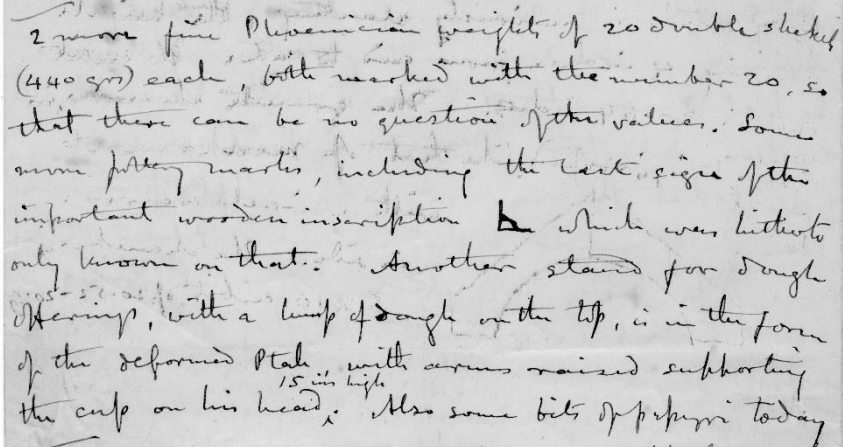 2 more fine Phoenician weights of 20 double shekels
(440 grs) each, both marked with the number 20, so
that there can be no question of the values. Some
more pottery marks, including the last sign of the
important wooden inscription which was hitherto
only known on that. Another stand for dough
offerings, with a lump of dough on the top, is in the form
of the deformed Ptah, with arms raised supporting
the cup on his head, 15 ins high. Also some bits of papyri today